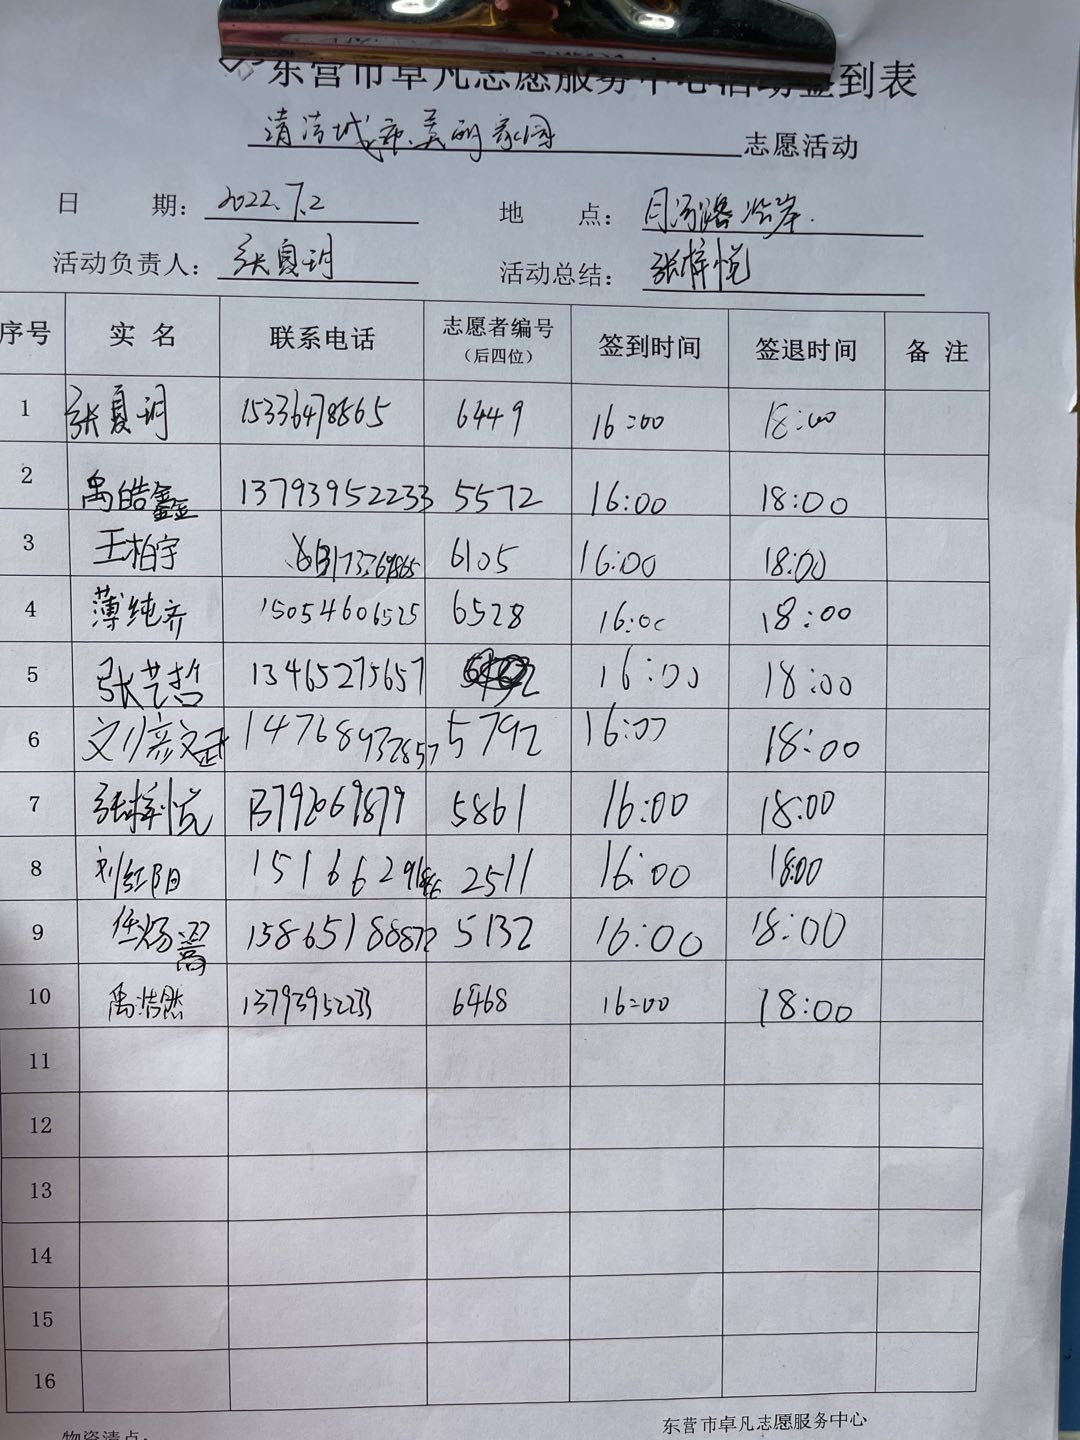 东营市卓凡志愿服务中心活动签到表
清洁城市.美丽家园 志愿活动
日 期: 2022.7.2 地 点: 月河路沿岸.
活动负责人: 张夏玥 活动总结: 张梓悦
序号 实 名 联系电话 志愿者编号(后四位) 签到时间 签退时间 备 注
1 张夏玥 15336478565 6449 16:00 18:00
2 禹皓鑫 13793952233 5572 16:00 18:00
3 王柏宇 6105 16:00 18:00
4 薄纯齐 15054606525 6528 16:00 18:00
5 张艺哲 13465275657 16:00 18:00
6 5792 16:00 18:00
7 张梓悦 5861 16:00 18:00
8 刘红阳 2511 16:00 18:00
9 15865188872 5132 16:00 18:00
10 禹浩然 13793952233 6468 16:00 18:00
11
12
13
14
15
16
物资清点:
东营市卓凡志愿服务中心